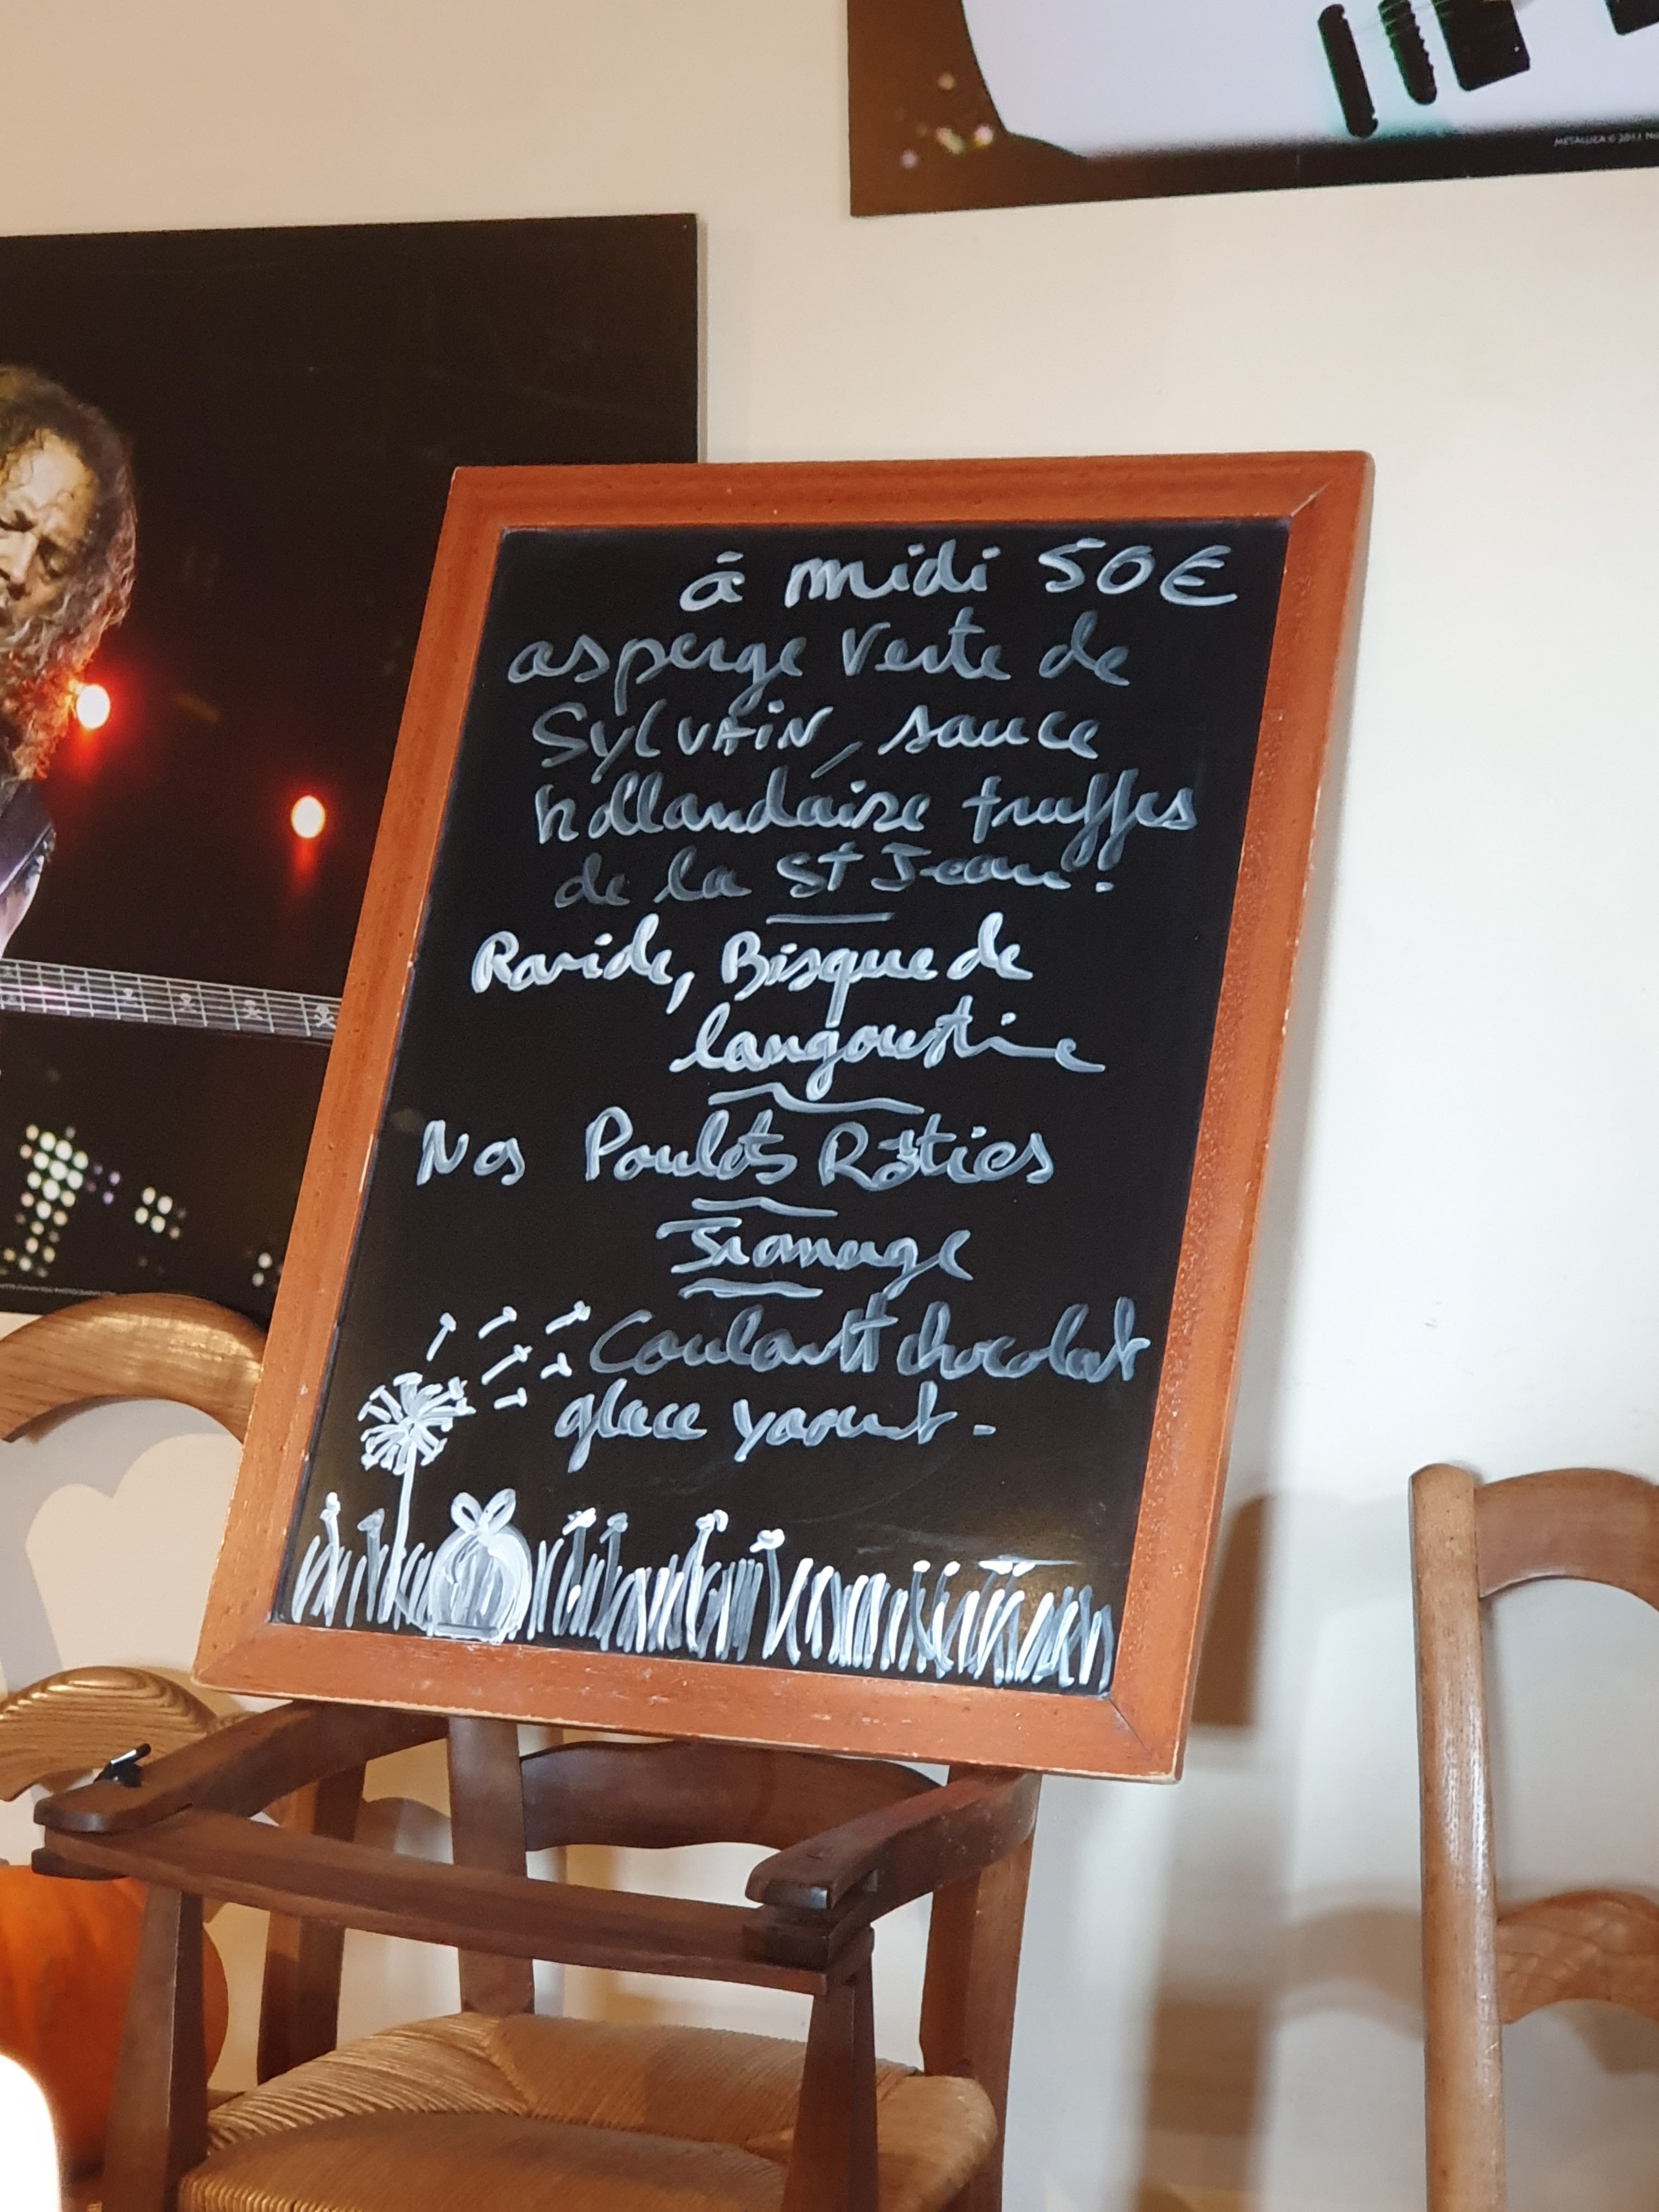 METALLICA © 2011
à midi 50€
asperge verte de
SYLVAIN, sauce
hollandaise truffes
de la St Jean.
Raviole, Bisque de
langoustine
Nos Poulets Rôties
Fromage
Coulantt chocolat
glace yaourt -